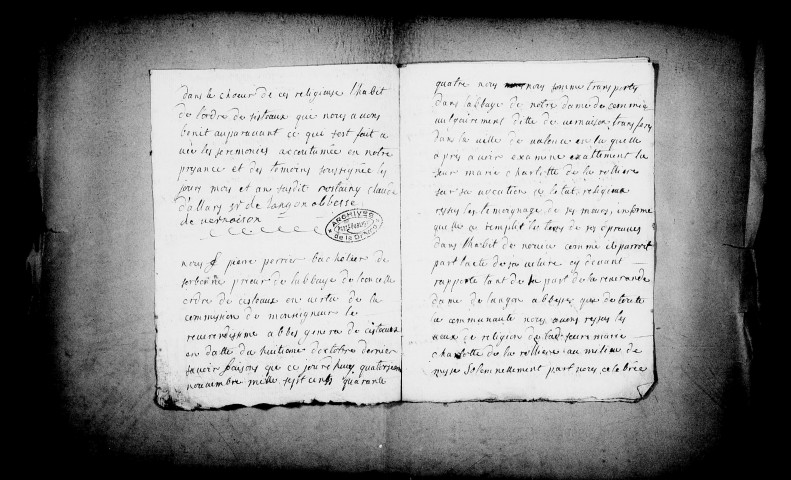 dans le choeur de ces religieuse lhabit
de lordre de sisteaux que nous avons
benit auparavant ce que sest fait a
vec les seremonies accoutumée en notre
presance et des temoins soussignée les
jours mois et an susdit claude
dallary sr de langon abbesse
de vernaison
ARCHIVES
de la Drôme
nous f piere perrier bachelier de
sorbonne prieur de labbaye de leoncelle
ordre de cisteaux en vertu de la
commission de monseigneur le
reverendisime abbes general de cisteaux
en datte du huitieme doctobre dernier
savoir faisons que ce jourdhuy quatorzieme
novambre mille sept cents quarante
quatre nous nous somme transportés
dans labbaye de notre dame de commiè
vulgairement ditte de vernaison transferé
dans la ville de valence en la quelle
apres avoir examine exattement la
seur marie charlotte de la rolliere
sur sa vocation a letat religieux
ressus les temoignage de ses meurs, informé
quelle a remplit les tems de ses epreuves
dans lhabit de novice comme il paroit
part lacte de sa veture cy devant
rapporté tant de la part de la reverande
dame de langon abbesse que de toute
la communauté nous avons ressus les
veux de religion de lad seure marie
charlotte de la rolliere au milieu de
messe solemnellement part nous celebrée